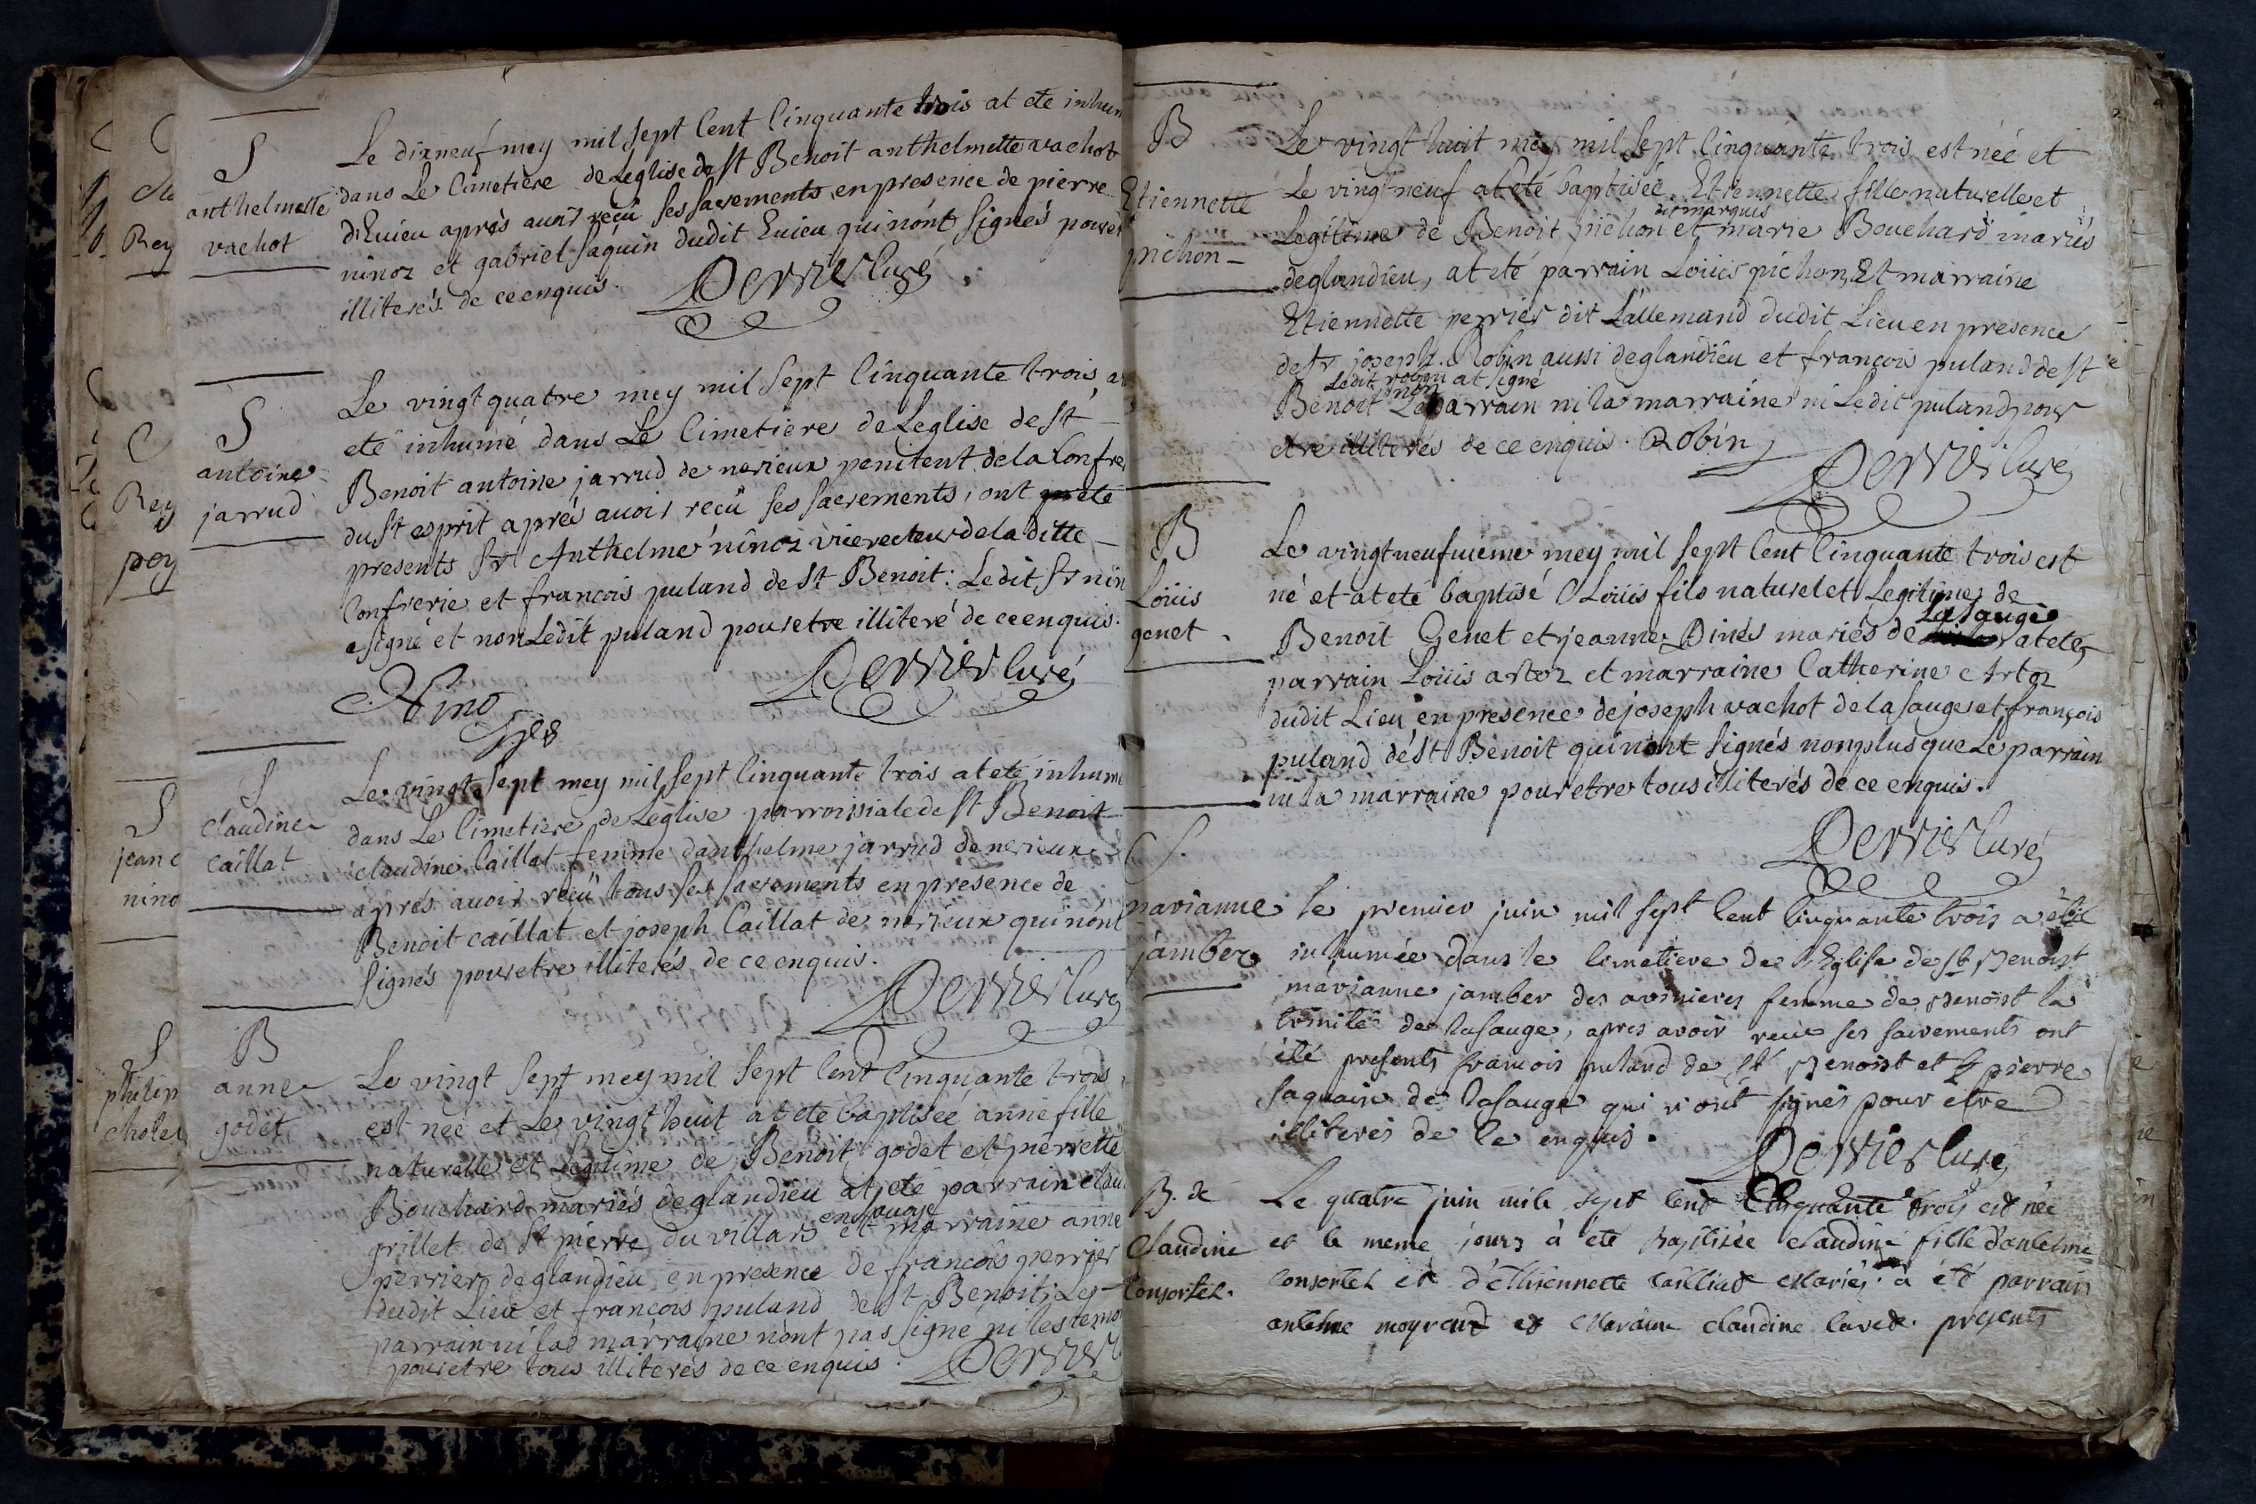 S
anthelmette
vachot
Le dixneuf mey mil sept Cent Cinquante trois at ete inhum
dans Le Cimetiere de Leglise de St Benoit anthelmette vachot
d'Euieu aprés auoir reçu ses sacrements en presence de pierre
ninoz et gabriel saquin dudit Euieu qui nont signés pouret
illiterés de ce enquis.
Perrier Curé
S
antoine
jarrud
Le vingt quatre mey mil sept Cinquante trois, at
eté inhumé dans Le Cimetiere de Leglise de St
Benoit antoine jarrud de nerieux penitent de la Confre
du St esprit aprés auoir recû ses sacrements, ont
presents Sr Anthelme ninoz vicerecteur de la ditte
Confrerie et francois puland de St Benoit: Ledit Sr nin
a signé et non Ledit puland pour etre illiteré de ce enquis.
Perrier Curé
Nino
S
claudine
caillat
Le vingt sept mey mil sept Cinquante trois at eté inhumé
dans Le Cimetiere de Leglise parroissiale de St Benoit
claudine Caillat femme danthelme jarrud de nerieux
aprés auoir reçû tous ses sacrements en presence de
Benoit caillat et joseph Caillat de nerieux qui nont
signés pour etre illiterés de ce enquis.
Perrier Curé
B
anne
godet
Le vingt sept mey mil sept Cent Cinquante trois
est née et Le vingt huit at ete baptisée anne fille
naturelle et Legitime de Benoit godet et pierrette
Bouchard mariés de glandieu at eté parrain clau
en savoye
grillet de St pierre du villars et marraine anne
perrier de glandieu en presence de francois perrier
dudit Lieu et francois puland de St Benoit; Le
parrain ni la marraine nont pas signé ni les temo
pour etre tous illiterés de ce enquis.
Perrier
B
Etiennette
pichon
Le vingt huit mey mil sept Cinquante trois est née et
Le vingt neuf at eté baptisée Etiennette fille naturelle et
dit marquis
Legitime de Benoit pichon et marie Bouchard mariés
deglandieu, at eté parrain Loüis pichon, Et marraine
Etiennette perrier dit Lallemand dudit Lieu en presence
de Sr joseph Robin aussi deglandieu et françois puland de St
Ledit robin at signé
non
Benoit Le parrain ni la marraine ni Ledit puland pour
etre illiterés de ce enquis. Robin
Perrier Curé
B
Loüis
genet
Le vingt neufvieme mey mil sept Cent Cinquante trois est
né et at eté baptisé Loüis fils naturel et Legitime de
La sauge
Benoit Genet et jeanne Dinés mariés de at eté
parrain Loüis artoz et marraine Catherine Artoz
dudit Lieu en presence de joseph vachot de la sauge et françois
puland de St Benoit qui nont signés non plus que Le parrain
ni la marraine pour etre tous illiterés de ce enquis.
Perrier Curé
S
marianne
jamber
le premier juin mil sept Cent Cinquante trois a été
inhumée dans le Cimetiere de l'Eglise de St Benoist
marianne jamber des avenieres femme de Benoist la
trinité de lasauge, apres avoir reçue ses sacrements ont
été presents francois puland de St Benoist et pierre
saquain de lasauge qui n'ont signés pour etre
illiterés de Ce enquis.
Perrier Curé
B. de
Claudine
Consortel.
Le quatre juin mile sept Cent Cinquante trois est née
et le meme jours à été Baptisée claudine fille dantelme
Consortel et d'Ethiennette Cailliat Mariés. à été parrain
antelme moyroud et Maraine claudine Cavet. presents